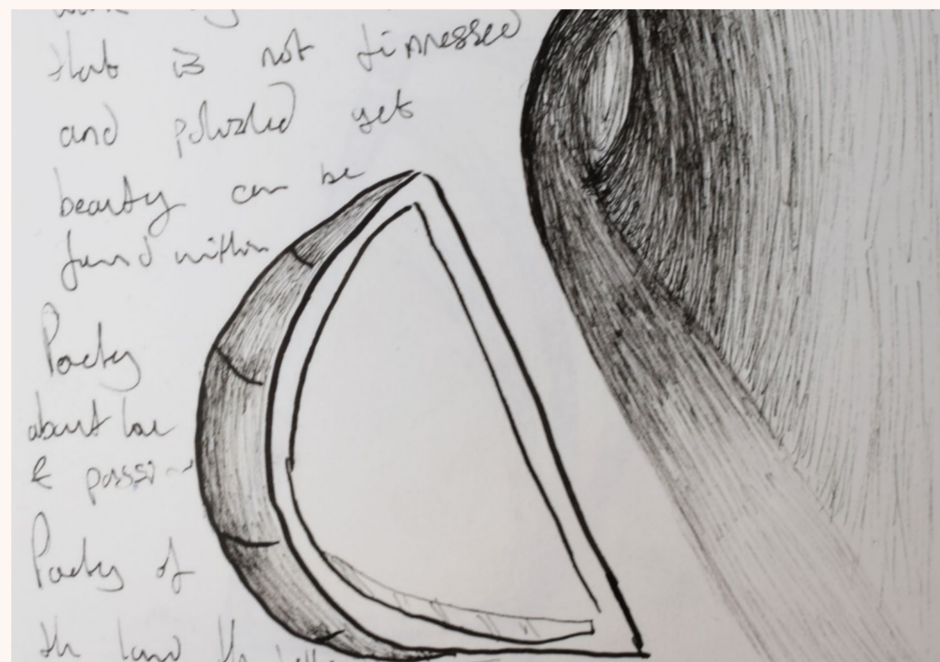 that is not finnessed
and polished yet
beauty can be
found within
Poetry
about love
&
Poetry of
the land the